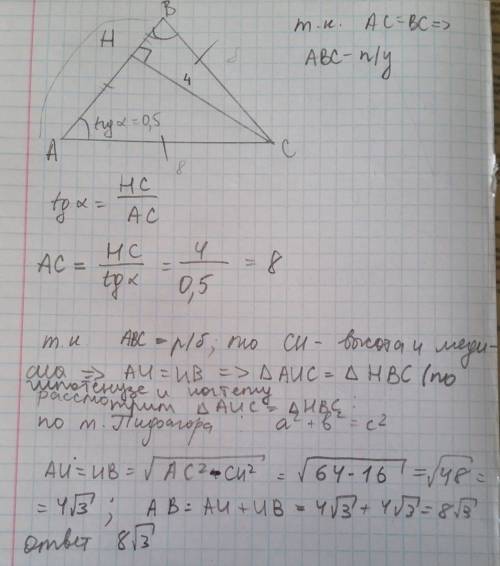 B
т.к. AC=BC=>
H
ABC-п/у
4
tgα=0,5
A
C
8
tgα = HC/AC
AC = HC/tgα = 4/0,5 = 8
т.к ABC = р/б, то CH - высота и меди-
ана => AH=HB => ΔAHC = ΔHBC (по
гипотенузе и катету
рассмотрим ΔAHC = ΔHBC:
по т. Пифагора a²+b²=c²
AH=HB=√AC²-CH² = √64-16 =√48=
=4√3; AB=AH+HB=4√3+4√3=8√3
ответ 8√3